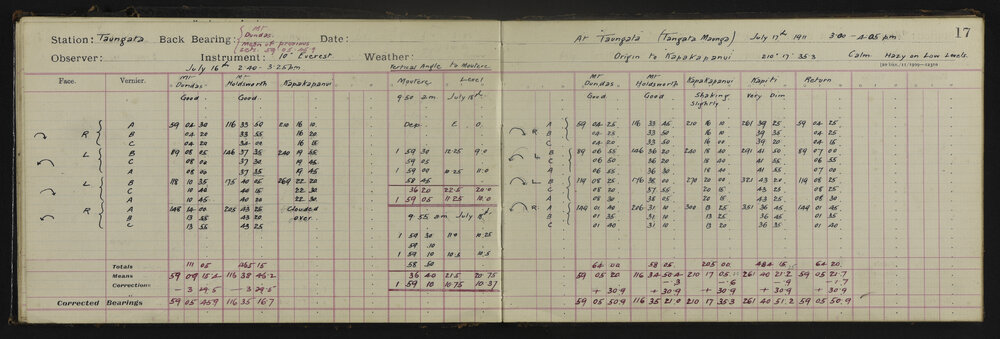 Station: Taungata Back Bearing: { Mt Dundas. Mean of previous sets 59 05 45.9 Date:
Observer: Instrument: 10" Everest Weather:
July 16th 2.40 - 3.25 pm Vertical Angle to Moutere
Face. Vernier. Mt Dundas Mt Holdsworth Kapakapanui Moutere Level
Good Good 9.50 am July 18th
A 59 04 30 116 33 50 210 16 10 Dep. E. O.
R B 04 20 33 55 16 20
C 04 20 34 00 16 15
L B 89 08 05 146 37 35 240 19 55 1 59 30 12.25 9.0
C 08 00 37 30 19 45 59 05
A 08 00 37 35 19 45 1 59 00 10.25 11.0
L B 118 10 35 175 40 05 269 22 20 58 45
C 10 40 40 15 22 30 36 20 22.5 20.0
A 10 45 40 20 22 30 1 59 05 11.25 10.0
R A 148 14 00 205 43 25 Clouded
B 13 55 43 20 over. 9.55 am July 18th
C 13 55 43 25
1 59 30 11.0 10.25
59 10
1 59 10 10.5 10.5
Totals 111 05 465 15 58 50
Means 59 09 15.4 116 38 46.2 36 40 21.5 20.75
Corrections - 3 29.5 - 3 29.5 1 59 10 10.75 10.37
Corrected Bearings 59 05 45.9 116 35 16.7
17
At Taungata (Tangata Maunga) July 17th 1911 3.00 - 4.05 pm
Origin to Kapakapanui 210° 17' 35.3 Calm Hazy on Low Levels.
Mt Dundas Mt Holdsworth Kapakapanui Kapiti Return
Good Good Shaking Slightly Very Dim
A 59 04 25 116 33 45 210 16 10 261 39 25 59 04 25
R B 04 25 33 50 16 10 39 35 04 25
C 04 20 33 50 16 00 39 20 04 15
L B 89 06 55 146 36 20 240 18 40 291 41 50 89 07 00
C 06 50 36 20 18 40 41 55 06 55
A 06 55 36 30 18 40 41 55 07 00
L B 119 08 25 176 38 00 270 20 00 321 43 20 119 08 25
C 08 20 37 55 20 15 43 25 08 25
A 08 30 38 05 20 15 43 25 08 25
R A 149 01 40 206 31 10 300 13 25 351 36 45 149 01 45
B 01 35 31 10 13 25 36 45 01 35
C 01 40 31 10 13 20 36 35 01 40
64 00 58 05 205 00 484 15 64 20
59 05 20 116 34 50.4 210 17 05 261 40 21.2 59 05 21.7
- .3 - .6 - .9 - 1.7
+ 30.9 + 30.9 + 30.9 + 30.9 + 30.9
59 05 50.9 116 35 21.0 210 17 35.3 261 40 51.2 59 05 50.9